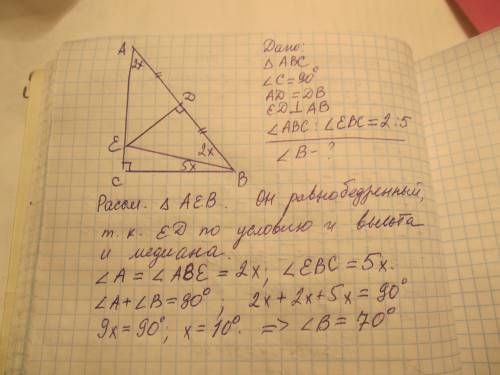 A
2x
D
E
2x
5x
C
B
Дано:
△ ABC
∠C=90°
AD=DB
ED⊥AB
∠ABC:∠EBC=2:5
∠B-?
Рассм. △ AEB. Он равнобедренный,
т.к. ED по условию и высота
и медиана.
∠A=∠ABE=2x; ∠EBC=5x.
∠A+∠B=90°; 2x+2x+5x=90°
9x=90°; x=10°. => ∠B=70°